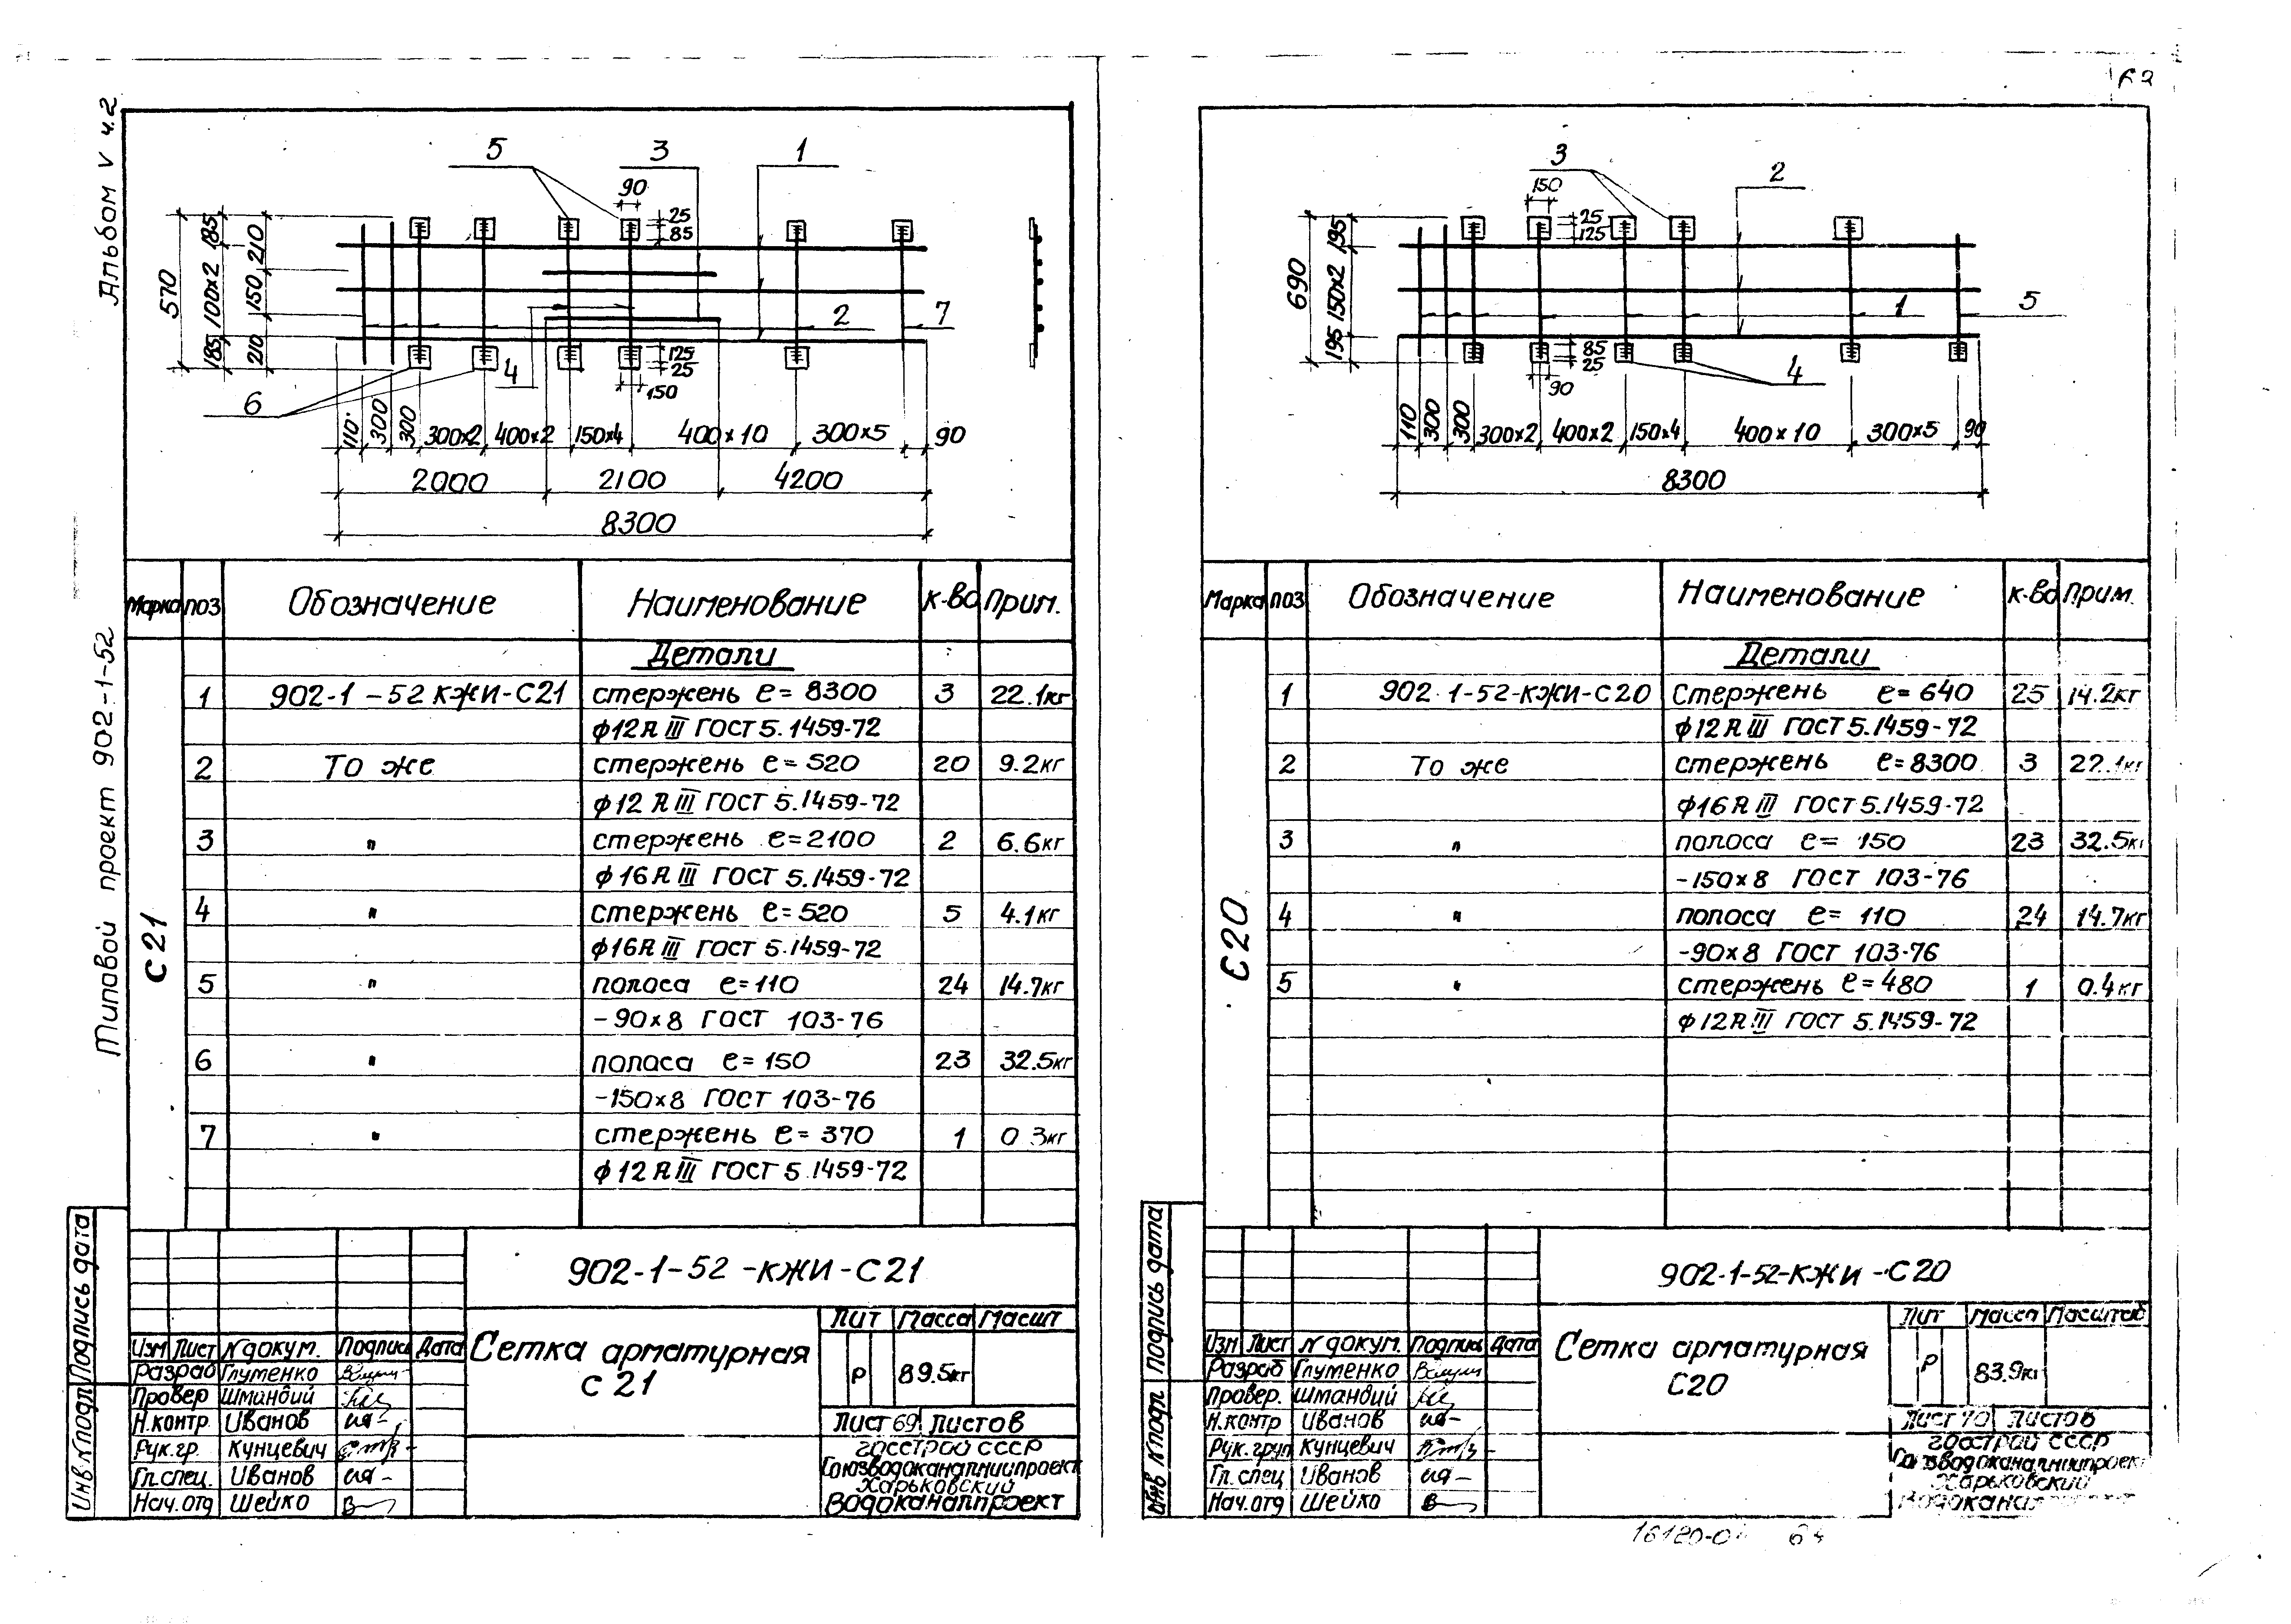 Альбом V ч.2
Типовой проект 902-1-52
Инв № подл Подпись дата
5 3 1
90
25
85
570
185 100х2 185
210 150 210
2 7
4
6
125
25
150
110 300 300 300х2 400х2 150х4 400х10 300х5 90
2000 2100 4200
8300
Марка поз Обозначение Наименование к-во Прим.
С21
Детали
1 902-1-52 КЖИ-С21 стержень ℓ=8300 3 22.1кг
ф12АIII ГОСТ 5.1459-72
2 То же стержень ℓ=520 20 9.2кг
ф12АIII ГОСТ 5.1459-72
3 " стержень ℓ=2100 2 6.6кг
ф16АIII ГОСТ 5.1459-72
4 " стержень ℓ=520 5 4.1кг
ф16АIII ГОСТ 5.1459-72
5 " полоса ℓ=110 24 14.7кг
-90х8 ГОСТ 103-76
6 " полоса ℓ=150 23 32.5кг
-150х8 ГОСТ 103-76
7 " стержень ℓ=370 1 0.3кг
ф12АIII ГОСТ 5.1459-72
902-1-52-КЖИ-С21
Изм Лист № докум. Подпись Дата
Разраб Глуменко
Провер Шмандий
Н.контр. Иванов
Рук.гр. Кунцевич
Гл.спец. Иванов
Нач.отд Шейко
Сетка арматурная
С 21
Лит Масса Масшт
Р 89.5кг
Лист 69 Листов
Госстрой СССР
Союзводоканалниипроект
Харьковский
Водоканалпроект
3 2
150
25
125
690
195 150х2 195
1 5
85
25
90
4
110 300 300 300х2 400х2 150х4 400х10 300х5 90
8300
Марка поз Обозначение Наименование к-во Прим.
С20
Детали
1 902-1-52-КЖИ-С20 Стержень ℓ=640 25 14.2кг
ф12АIII ГОСТ 5.1459-72
2 То же стержень ℓ=8300 3 22.1кг
ф16АIII ГОСТ 5.1459-72
3 " полоса ℓ=150 23 32.5кг
-150х8 ГОСТ 103-76
4 " полоса ℓ=110 24 14.7кг
-90х8 ГОСТ 103-76
5 " стержень ℓ=480 1 0.4кг
ф12АIII ГОСТ 5.1459-72
Инв № подл Подпись дата
902-1-52-КЖИ-С20
Изм Лист № докум. Подпись Дата
Разраб Глуменко
Провер. Шмандий
Н.контр Иванов
Рук.груп Кунцевич
Гл.спец Иванов
Нач.отд Шейко
Сетка арматурная
С20
Лит Масса Масштаб
Р 83.9кг
Лист 70 Листов
Госстрой СССР
Союзводоканалниипроект
Харьковский
Водоканалпроект